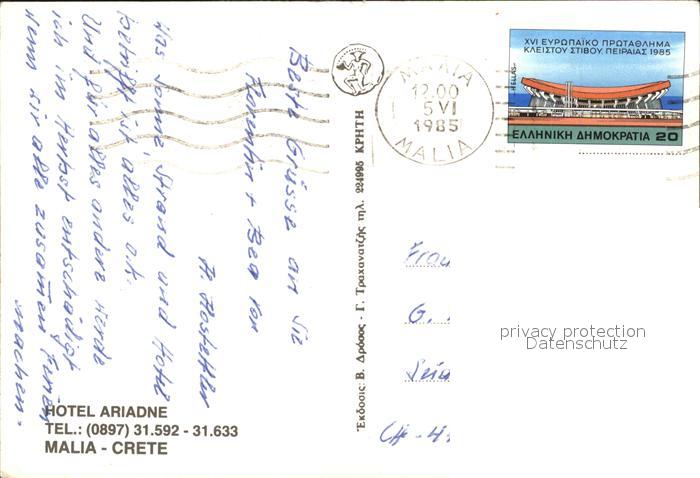 XVI ΕΥΡΩΠΑΪΚΟ ΠΡΩΤΑΘΛΗΜΑ
ΚΛΕΙΣΤΟΥ ΣΤΙΒΟΥ, ΠΕΙΡΑΙΑΣ 1985
HELLAS
ΕΛΛΗΝΙΚΗ ΔΗΜΟΚΡΑΤΙΑ 20
ΜΑΛΙΑ
12.00
5 VI
1985
MALIA
Beste Grüsse an Sie
+ Bea von
A. Hostettler
Was Sonne, Strand und Hotel
betrifft ist alles o.k.
Und für alles andere werde
ich im Herbst entschädigt
wenn wir alle zusammen Ferien
machen.
Ἔκδοσις: Β. Δρόσος - Γ. Τραχανατζῆς τηλ. 224995 ΚΡΗΤΗ
Frau
G.
CH-4
privacy protection
Datenschutz
HOTEL ARIADNE
TEL.: (0897) 31.592 - 31.633
MALIA - CRETE